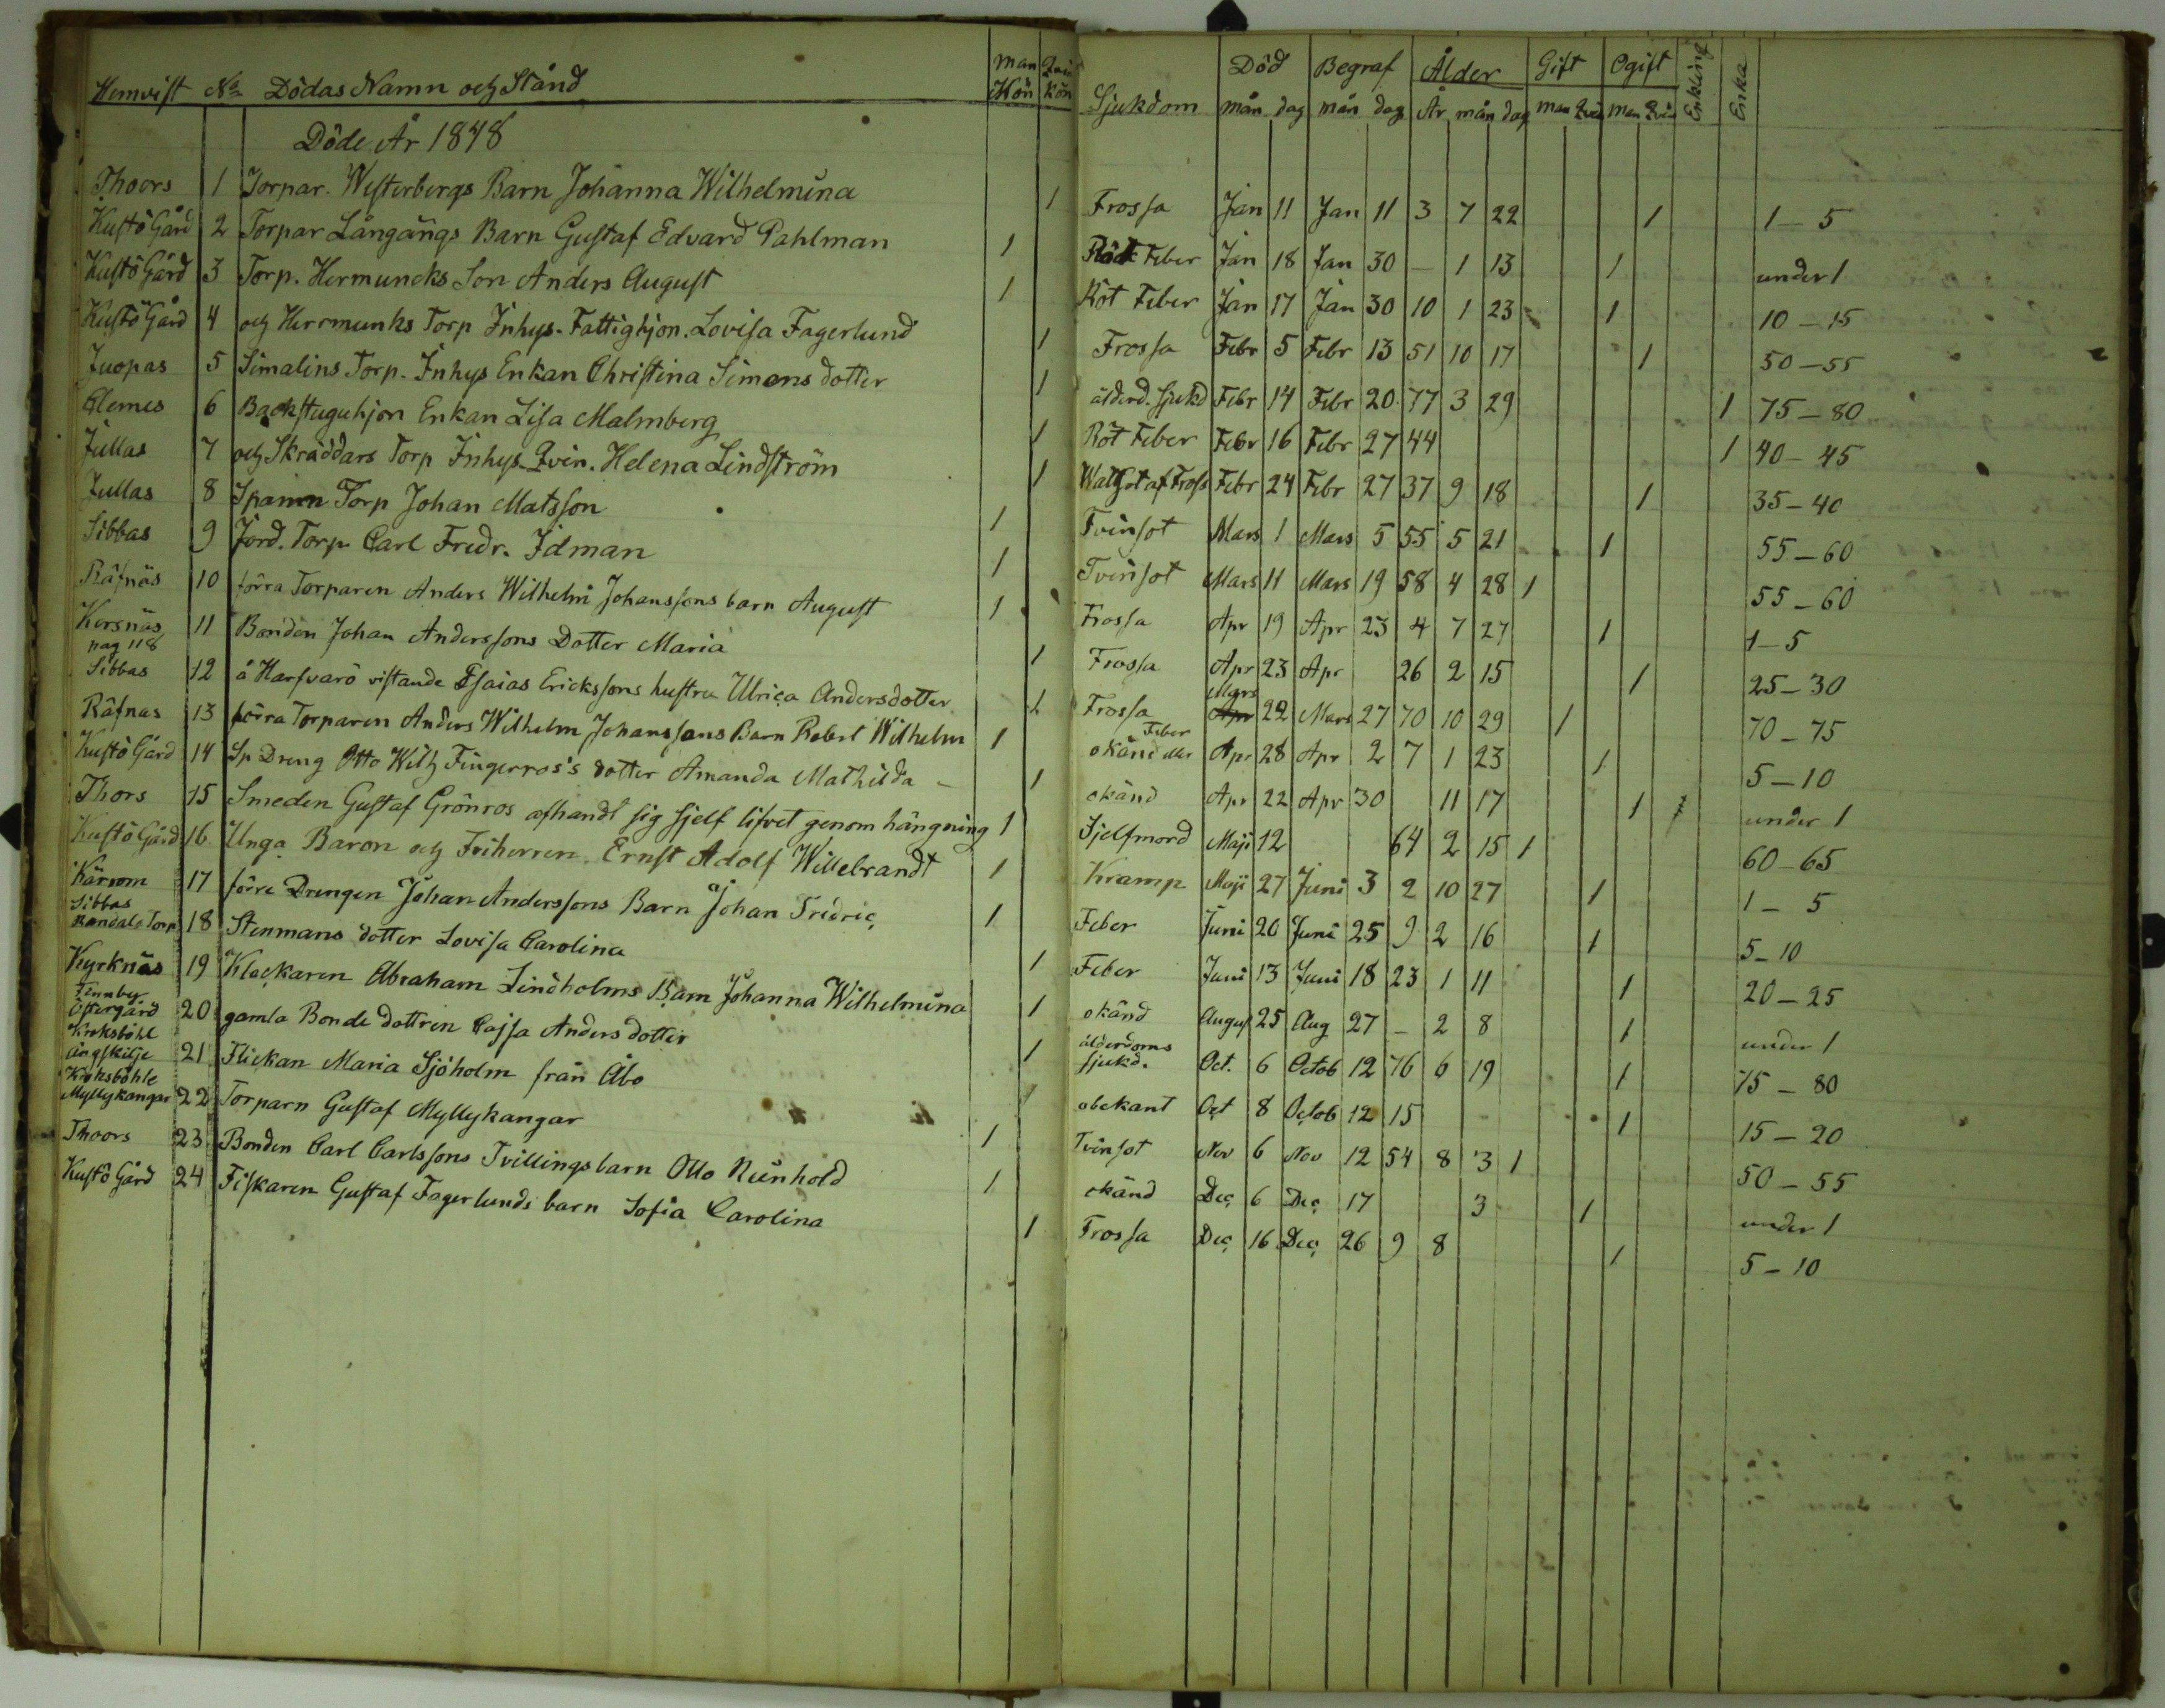 Hemvist No Dödas Namn och Stånd Man Kön Qvin Kön Sjukdom Död mån dag Begraf mån dag Ålder År mån dag Gift Man Qvin Ogift Man Qvin Enkling Enka
Döde År 1848
Thoors 1 Torpar. Westerbergs Barn Johanna Wilhelmina 1 Frossa Jan 11 Jan 11 3 7 22 1 1–5
Kustö Gård 2 Torpar Långängs Barn Gustaf Edvard Pahlman 1 Röt Feber Jan 18 Jan 30 – 1 13 1 under 1
Kustö Gård 3 Torp. Hermuncks Son Anders August 1 Röt Feber Jan 17 Jan 30 10 1 23 1 10–15
Kustö Gård 4 och Herrmunks Torp Inhys. Fattighjon. Lovisa Fagerlund 1 Frossa Febr 5 Febr 13 51 10 17 1 50–55
Juopas 5 Simalins Torp. Inhys Enkan Christina Simons dotter 1 ålderd. sjukd Febr 14 Febr 20 77 3 29 1 75–80
Clemes 6 Backstuguhjon Enkan Lisa Malmberg 1 Röt Feber Febr 16 Febr 27 44 1 40–45
Jullas 7 och Skräddars Torp Inhys. Qvin. Helena Lindström 1 Febr 24 Febr 27 37 9 18 1 35–40
Jullas 8 Torp Johan Matsson 1 Tvinsot Mars 1 Mars 5 55 5 21 1 55–60
Sibbas 9 Jord. Torp. Carl Fredr. Idman 1 Tvinsot Mars 11 Mars 19 58 4 28 1 55–60
Räfnäs 10 förra Torparen Anders Wilhelm Johanssons barn August 1 Frossa Apr 19 Apr 23 4 7 27 1 1–5
Kersnäs pag 118 11 Bonden Johan Anderssons Dotter Maria 1 Frossa Apr 23 Apr 26 2 15 1 25–30
Sibbas 12 å Harfvarö vistande Esaias Erickssons hustru Ulrica Andersdotter 1 Frossa Mars 22 Mars 27 70 10 29 1 70–75
Räfnas 13 förra Torparen Anders Wilhelm Johanssons Barn Robert Wilhelm 1 okänd eller Feber Apr 28 Apr 2 7 1 23 1 5–10
Kustö Gård 14 Sp Dreng Otto Wilh Fingerroos's dotter Amanda Mathilda – 1 okänd Apr 22 Apr 30 11 17 1 under 1
Thors 15 Smeden Gustaf Grönros afhandt sig sjelf lifvet genom hängning 1 Sjelfmord Maji 12 64 2 15 1 60–65
Kustö Gård 16 Unga Baron och Friherren. Ernst Adolf Willebrandt 1 Kramp Maji 27 Juni 3 2 10 27 1 1–5
Kärsom 17 förre Drengen Johan Anderssons Barn Johan Fredric 1 Feber Juni 20 Juni 25 9 2 16 1 5–10
Sibbas Randala Torp 18 Stenmans dotter Lovisa Carolina 1 Feber Juni 13 Juni 18 23 1 11 1 20–25
Kyrknäs 19 Klockaren Abraham Lindholms Barn Johanna Wilhelmina 1 okänd August 25 Aug 27 – 2 8 1 under 1
Finnby Östergård 20 gamla Bonde dottren Cajsa Anders dotter 1 ålderdoms sjukd. Oct. 6 Octob 12 76 6 19 1 75–80
Kroksböhl Ängskilje 21 Flickan Maria Sjöholm från Åbo 1 obekant Oct 8 Octob 12 15 1 15–20
Kroksböhle Myllykangar 22 Torparn Gustaf Myllykangar 1 Tvinsot Nov 6 Nov 12 54 8 3 1 50–55
Thoors 23 Bonden Carl Carlssons Tvillingsbarn Otto Reinhold 1 okänd Dec 6 Dec 17 3 1 under 1
Kustö Gård 24 Fiskaren Gustaf Fagerlunds barn Sofia Carolina 1 Frossa Dec 16 Dec 26 9 8 1 5–10